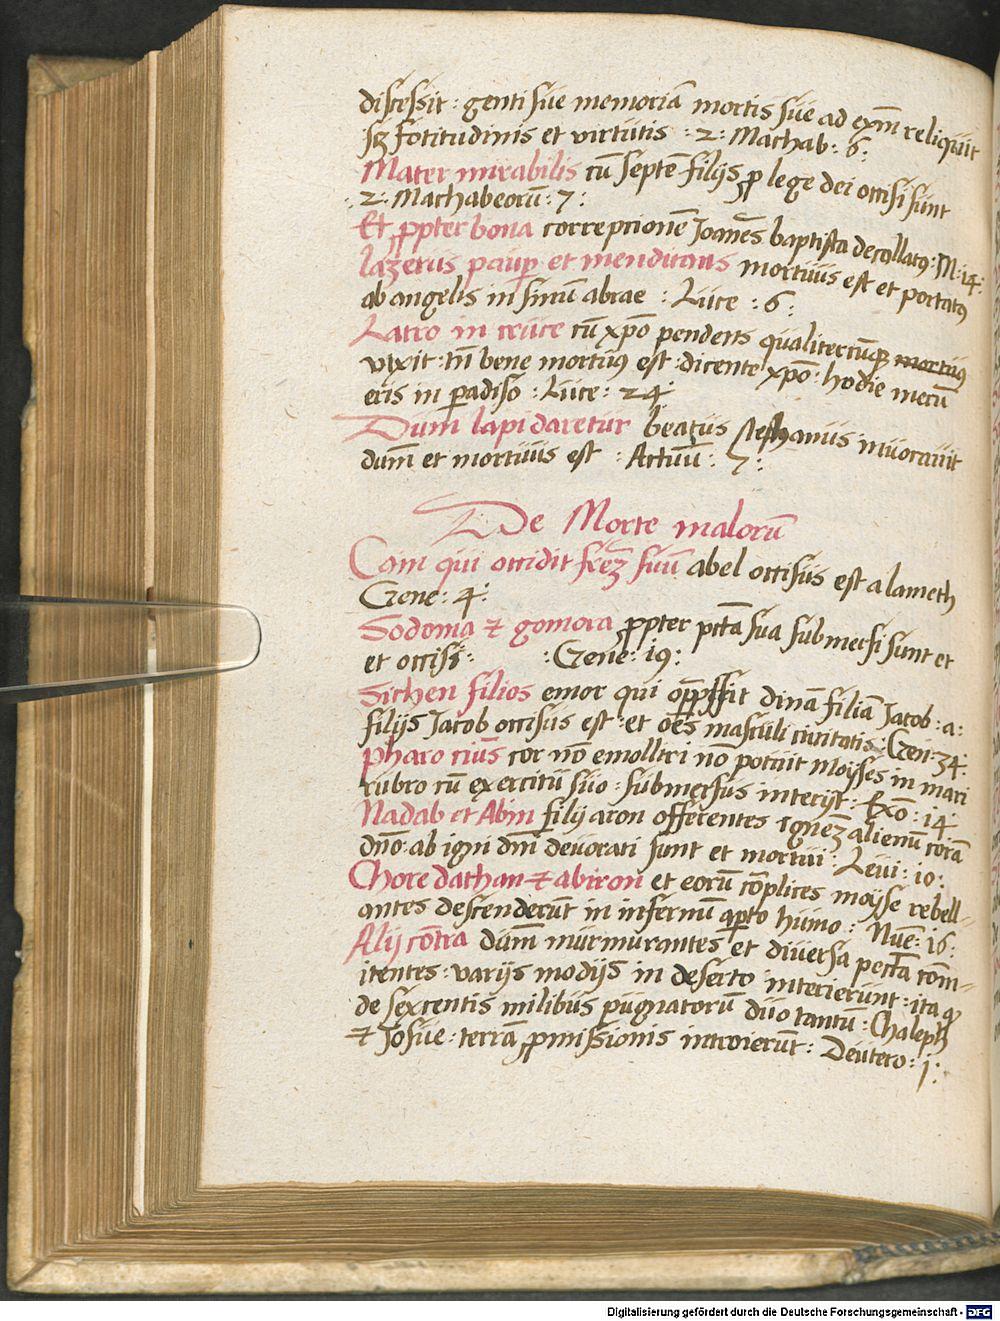 discessit : genti sue memoriã mortis sue ad exm̃ reliquit
sꝫ fotitudinis et virtutis : 2 : Machab : 6 :
Mater mirabilis cũ septẽ filijs ꝓ lege dei occisi sunt
: 2 : Machabeorũ : 7 :
Et ꝓpter bona correptionẽ Joanẽs baptista decollatꝰ : M : 14 :
lazerus paup̲ et mendicans mortuus est et portatꝰ
ab angelis in sinũ abrae : Luce : 6 :
Latro in cruce cũ xp̃o pendens qualitercũqꝫ mortuꝰ
vixit : tñ bene mortuꝰ est : dicente xp̃o : hodie mecũ
eris in p̲adiso : Luce : 24
Dum lapidaretur beatus stephanus inuocauit
dum̃ et mortuus est : Actuũ : 7 :
De Morte malorũ
Cain qui occidit fr̃eꝫ suũ abel occisus est a lameth
Gene : 4 :
Sodoma ⁊ gomora ꝓpter pctã sua submersi sunt et
et occisi : : Gene : 19 :
Sichen filios emor qui opp̲ssit dinã filiã Jacob : a :
filijs Jacob occisus est : et oẽs masculi ciuitatis : Gen : 34 :
pharo cius̃ cor nõ emolliri nõ potuit Moyses in mari
rubro cũ exercitu suo : submersus interijt : Exõ : 14
Nadab et Abiu filij aron offerentes ignẽꝫ alienũ corã
dño ab igni dñi deuorati sunt et mortui : Leui : 10 :
Chore dathan ⁊ abiron et eorũ cõplices moyse rebell-
antes descenderũt in infernũ ap̲to humo : Nũe : 16 :
Alij cõtra dum̃ murmurantes et diuersa pectã com̃-
itentes : varijs modijs in deserto interierũnt : ita qꝫ
de sexcentis milibus pugnatorũ duo tantũ : Chaleph
⁊ Josue : terrã ꝓmissionis introierũt : Deutero : j :
Digitalisierung gefördert durch die Deutsche Forschungsgemeinschaft - DFG